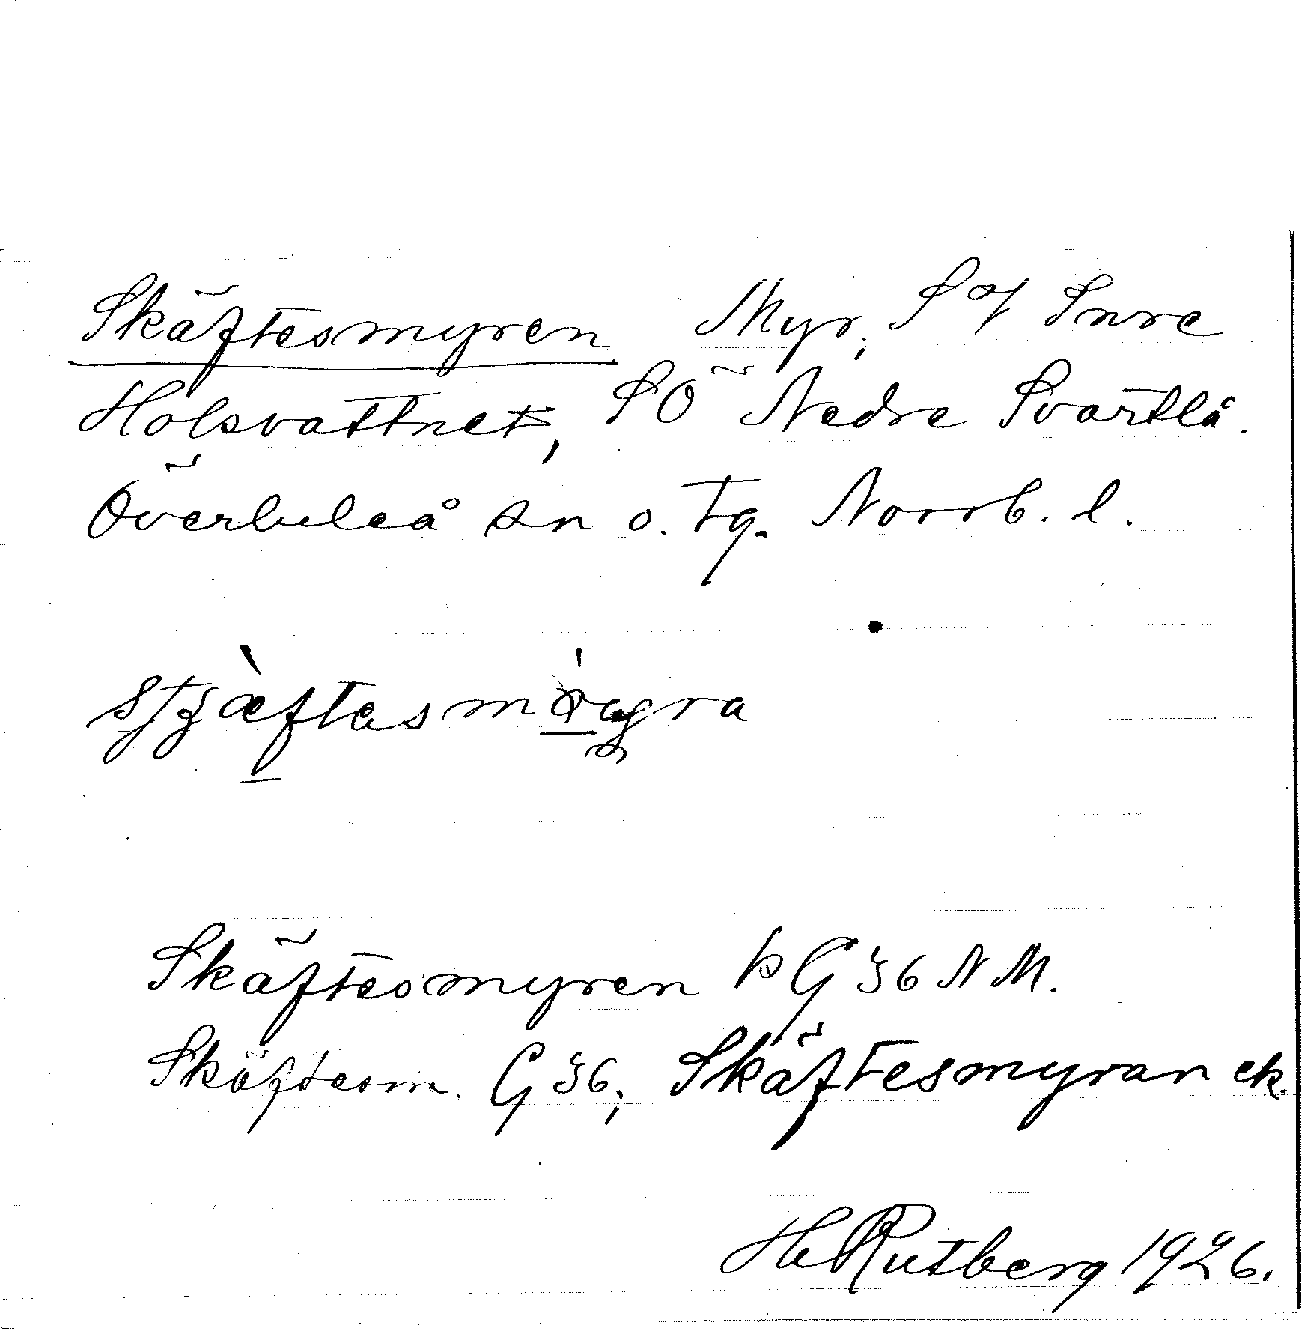 Skäftesmyren Myr, S of Inre
Holsvattnet, SO Nedre Svartlå.
Överluleå sn o. tg. Norrb. l.
Skäftesmyren þ G 36 N M.
Skäftesm. G 36; Skäftesmyran ek.
H Rutberg 1926.